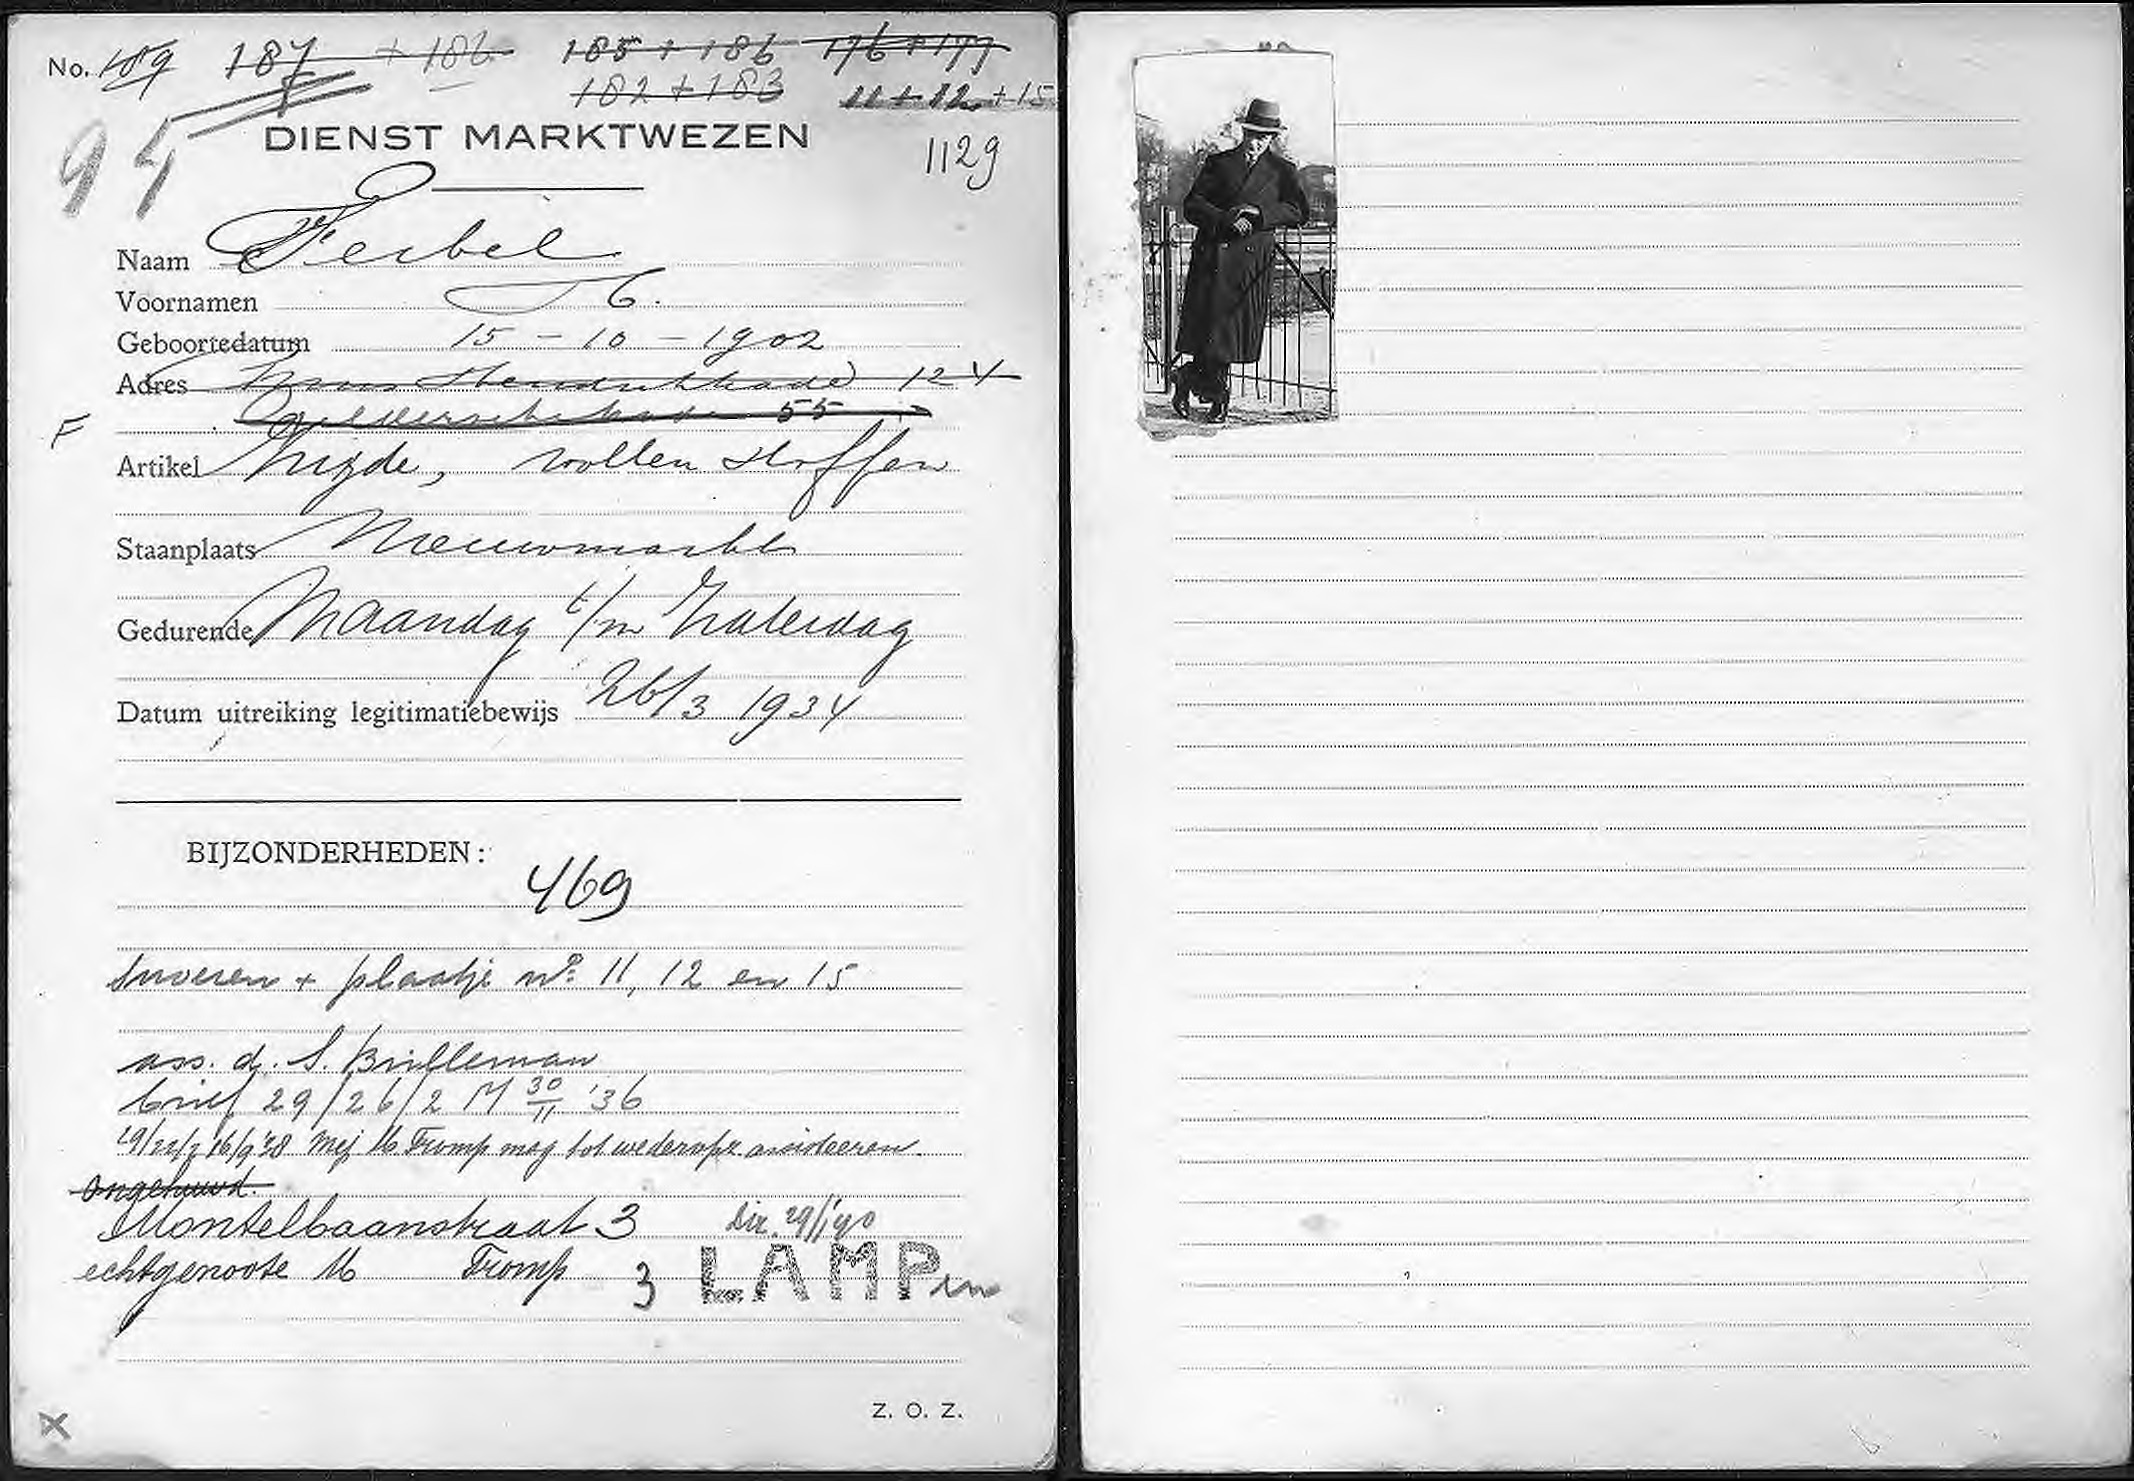 No. 189 187 + 186 185 + 186 176 + 177
182 + 183 11 + 12 + 15
94 DIENST MARKTWEZEN 1129
Naam Ferbel
Voornamen
Geboortedatum 15 - 10 - 1902
Adres Prins Hendrikkade 124
55
F
Artikel Zijde, wollen stoffen
Staanplaats Nieuwmarkt
Gedurende Maandag t/m Zaterdag
Datum uitreiking legitimatiebewijs 26/3 1934
BIJZONDERHEDEN:
469
+ plaatje no. 11, 12 en 15
ass. d. S. Brilleman
brief 29/26/2 M 30/11 '36
Mej M Tromp mag tot wederopz. assisteeren.
Ongehuwd.
Montelbaanstraat 3
echtgenoote M Tromp 3 LAMP
X
Z. O. Z.